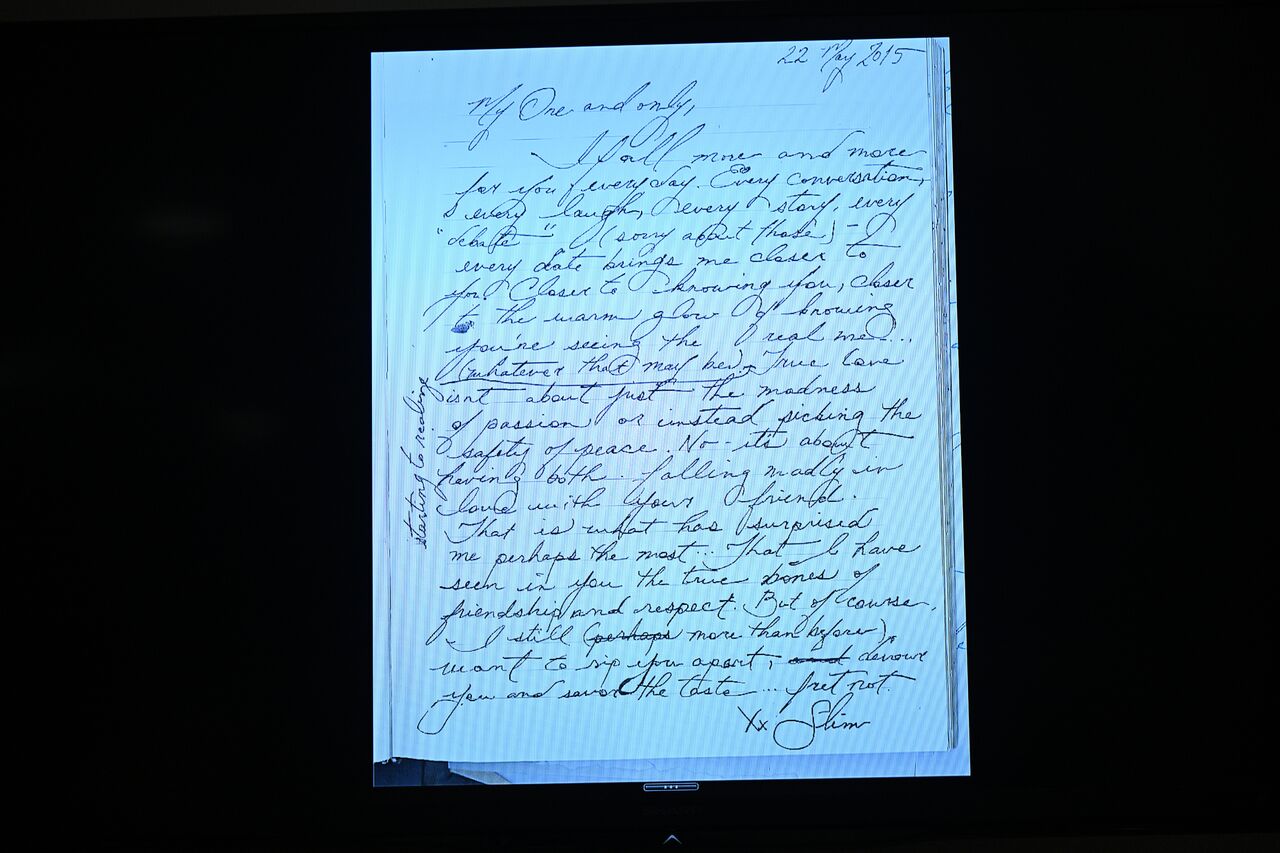 22 May 2015
My One and only,
I fall more and more
for you everyday. Every conversation,
& every laugh, every story, every
"debate" (sorry about those) –
every date brings me closer to
you. Closer to knowing you, closer
to the warm glow of knowing
you're seeing the real me...
(whatever that may be). True love
isnt about just the madness
of passion, or instead picking the
safety of peace. No - it's about
having both. falling madly in
love with your friend.
That is what has surprised
me perhaps the most... That I have
seen in you the true bones of
friendship and respect. But of course,
I still (perhaps more than before),
want to rip you apart, and devour
you and savor the taste... fret not.
Xx Slim
starting to realize